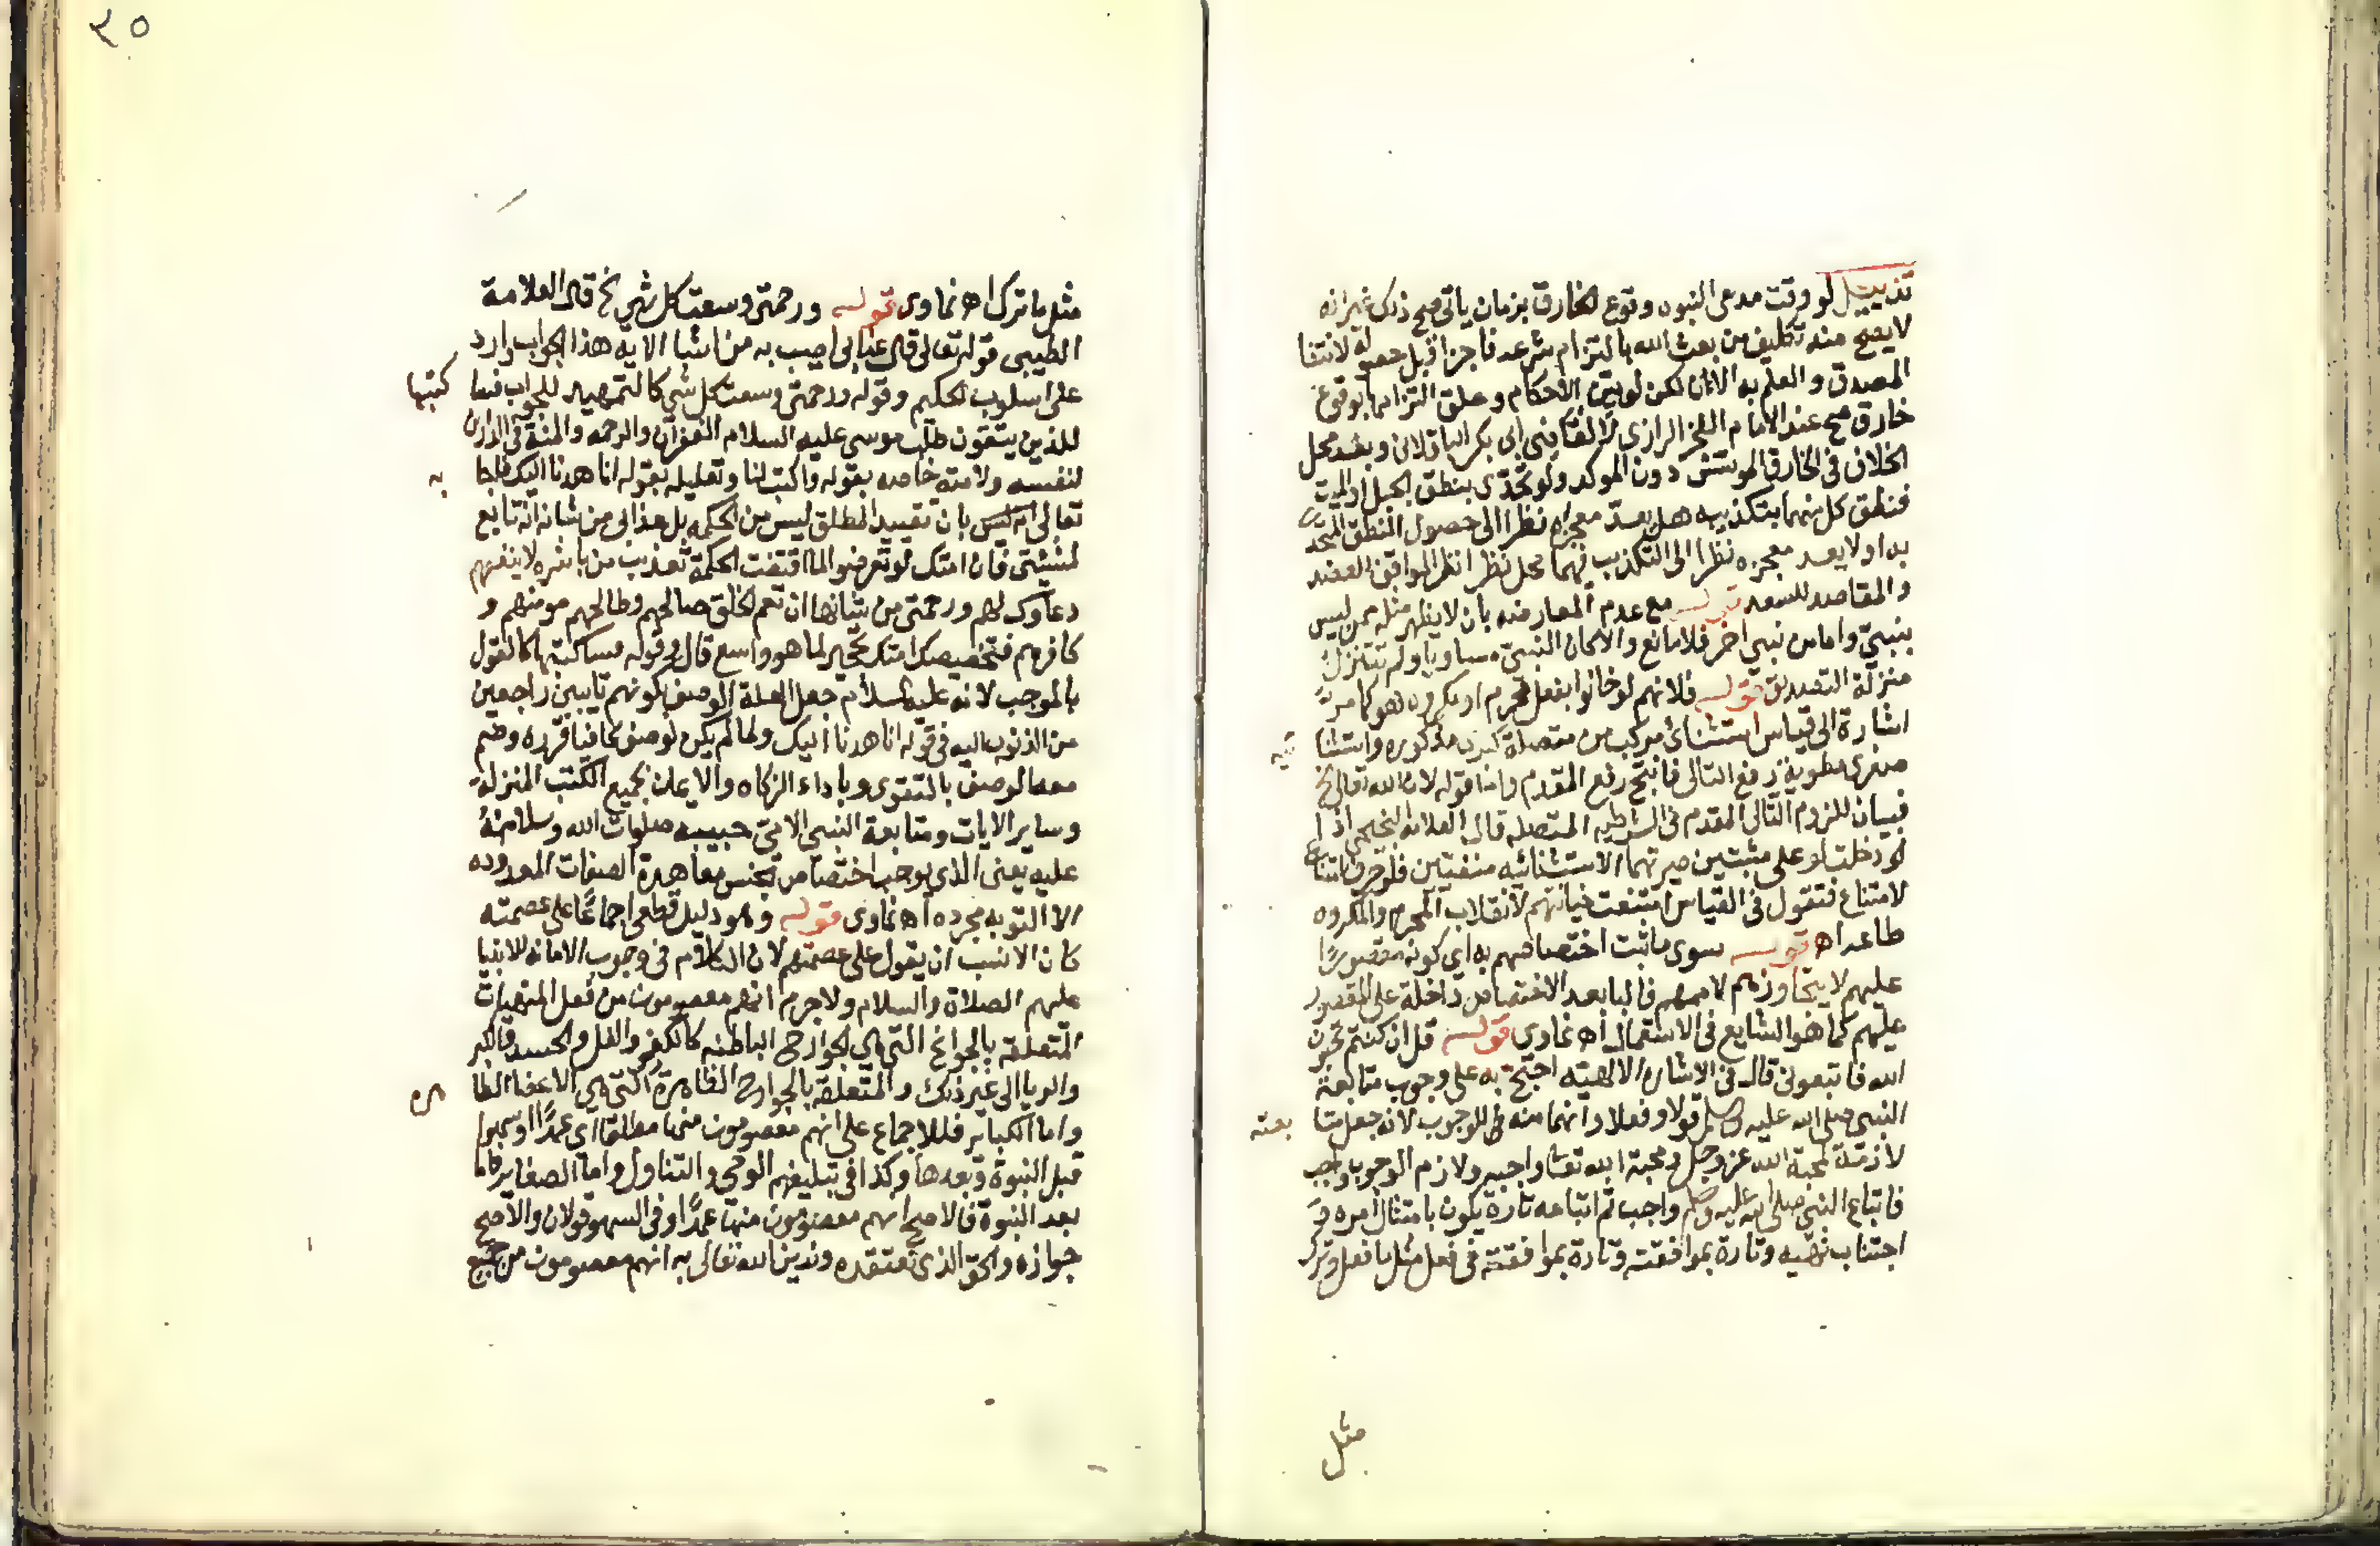 تذييل لو وقت مدعى النبوه وقوع الخارق بزمان ياتى صح ذلك غير انه
لا يصح منه تكليف من بعث الله بالتزام شرعه ناجزا قبل حصوله لانتفا
المصدق والعلم به الان لكن لو بين الاحكام وعلق التزامها بوقوع
خارق صح عند الامام الفخر الرازى لا القاضى ابى بكر الباقلانى وبعد محل
الخلاف فى الخارق الموسس دون الموكد ولو تحدى بنطق الجبل او الميت
فنطق كل منهما بتكذيبه هل يعد معجزه نظرا الى حصول النطق المتحدى
به او لا يعد معجزه نظرا الى التكذيب فيهما محل نظر انظر المواقف للعضد
والمقاصد للسعد قوله مع عدم المعارضه بان لا يظهر مثله ممن ليس
بنبى واما من نبى اخر فلا مانع والا كان النبى مساويا ولم تتنزل
منزلة التصديق قوله فلانهم لو خانوا بفعل محرم او مكروه هو كما مر
اشارة الى قياس استثنائ مركب من متصلة كبرى مذكوره واستثنا ئيه
صغرى مطوية رفع التالى فانتج رفع المقدم واما قوله لان الله تعالى الخ
فبيان للزوم التالى المقدم فى الشرطيه المتصله قال العلامه اذا
او دخلت لو على مثبتين صيرتهما الاستثنائيه منفيتين فلو حرف امتناع
لامتناع فتقول فى القياس امتنعت خيانتهم لانقلاب المحرم والمكروه
طاعه اه قوله سوى ما ثبت اختصاصهم به اى كونه مقصورا
عليهم لا يتجاوزهم لاممهم فالبا بعد الاختصاص داخلة على المقصور
عليهم كما هو الشايع فى الاستعمال اه غاوى قوله قل ان كنتم تحبون
الله فاتبعونى قال فى الاشاره الالهيه احتج به على وجوب متابعة
النبى صلى الله عليه وسلم قولا وفعلا وانهما منه للوجوب لانه جعل متا بعته
لازمة لمحبة الله عز وجل ومحبة الله تعا واجبه ولازم الوجوب واجب
فاتباع النبى صلى الله عليه وسلم واجب ثم اتباعه تارة يكون بامتثال امره و
اجتناب نهيه وتارة بموافقته وتارة بموافقته فى فعل مثل ما فعل وترك
مثل
٣٥
مثل ما ترك اه غاوى قوله ورحمتى وسعت كل شى الخ قال العلامة
الطيبى قوله تعالى قال عذابى اصيب به من اشا الايه هذا الجواب وارد
على اسلوب الحكيم وقوله ورحمتى وسعت كل شى كالتمهيد للجواب فسا كتبها
للذين يتقون طلب موسى عليه السلام الغفران والرحمه والمنة فى الدارين
لنفسه ولامته خاصه بقوله واكتب لنا وتعليله بقوله انا هدنا اليك فاجا به
تعالى بان تقييد المطلق ليس من الحكمه بل عذابى من شانه انه تابع
لمشيئتى فان امتك لو تعرضوا لما اقتضت الحكمة تعذيب من باشره لا ينفعهم
دعاوك لهم ورحمتى من شانها ان تعم الخلق صالحهم وطالحهم مومنهم و
كافرهم فتخصيصك امتك تحجير لما هو واسع قال وقوله فساكتبها كالقول
بالموجب لانه عليه السلام جعل العلة الوصف بكونهم تايبين راجعين
من الذنوب اليه فى قوله انا هدنا اليك ولما لم يكن لوصف كافيا قرره وضم
معه الوصف بالتقوى وباداء الزكاه والايمان بجميع الكتب المنزلة
وساير الايات ومتابعة النبى الامى حبيبه صلوات الله وسلامه
عليه يعنى الذى يوجب اختصاص تحنس معاهدة الصفات المعدوده
لا التوبه مجرده اه غاوى قوله وهو دليل قطعى اجماعا على عصمته
كان الانسب ان يقول على عصمتهم لان الكلام فى وجوب الامانه للانبيا
عليهم الصلاة والسلام ولا جرم انهم معصومون من فعل المنهيات
المتعلقه بالجوانح التى هى الجوارح الباطنه كالكفر والغل والحسد والكبر
والريا الى غير ذلك والمتعلقة بالجوارح الظاهرة التى هى الاعضا الظا هره
واما الكباير فللاجماع على انهم معصومون منها مطلقا اى عمدا او سهوا
قبل النبوة وبعدها وكذا فى تبليغهم الوحى والتناول واما الصغاير فاما
بعد النبوة فالاصح انهم معصومون منها عمدا وفى السهو قولان والاصح
جوازه والحق الذى نعتقده وندين الله تعالى به انهم معصومون من جميع